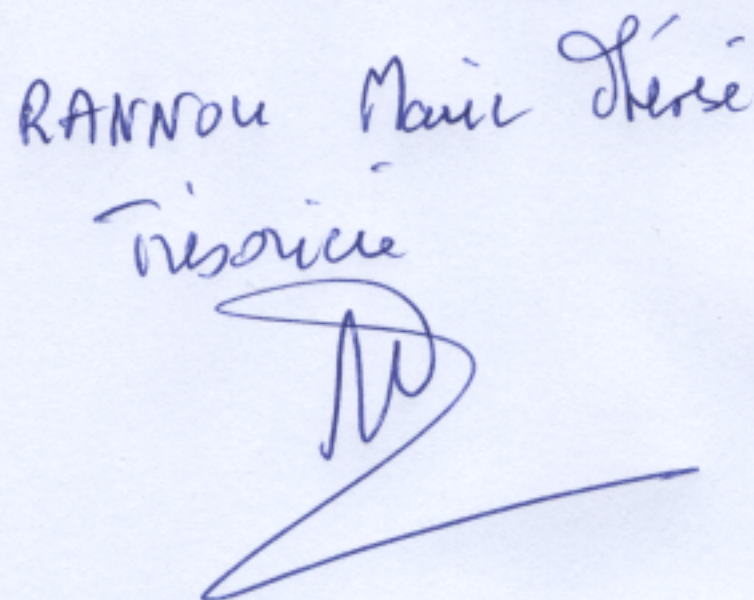 RANNOU Marie Thérèse
Trésorière